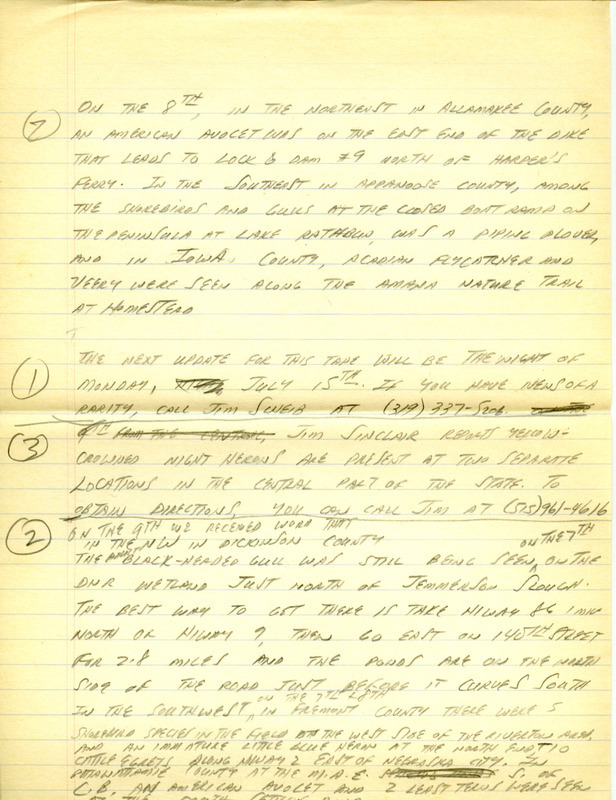 7
ON THE 8TH, IN THE NORTHEAST IN ALLAMAKEE COUNTY,
AN AMERICAN AVOCET WAS ON THE EAST END OF THE DIKE
THAT LEADS TO LOCK & DAM #9 NORTH OF HARPER'S
FERRY. IN THE SOUTHEAST IN APPANOOSE COUNTY, AMONG
THE SHOREBIRDS AND GULLS AT THE CLOSED BOAT RAMP ON
THE PENINSULA AT LAKE RATHBUN, WAS A PIPING PLOVER,
AND IN IOWA COUNTY, ACADIAN FLYCATCHER AND
VEERY WERE SEEN ALONG THE AMANA NATURE TRAIL
AT HOMESTEAD
1
THE NEXT UPDATE FOR THIS TAPE WILL BE THE NIGHT OF
MONDAY, JULY 15TH. IF YOU HAVE NEWS OF A
RARITY, CALL JIM SCHEIB AT (319) 337-5206.
3
JIM SINCLAIR REPORTS YELLOW-
CROWNED NIGHT HERONS ARE PRESENT AT TWO SEPARATE
LOCATIONS IN THE CENTRAL PART OF THE STATE. TO
OBTAIN DIRECTIONS, YOU CAN CALL JIM AT (515) 961-4616
2
ON THE 9TH WE RECEIVED WORD THAT
IN THE NW IN DICKINSON COUNTY ON THE 7TH
THE BLACK-HEADED GULL WAS STILL BEING SEEN ON THE
DNR WETLAND JUST NORTH OF JEMMERSON SLOUGH.
THE BEST WAY TO GET THERE IS TAKE HIWAY 86 1 MILE
NORTH OF HIWAY 9, THEN GO EAST ON 140TH STREET
FOR 2.8 MILES AND THE PONDS ARE ON THE NORTH
SIDE OF THE ROAD JUST BEFORE IT CURVES SOUTH
ON THE 7TH & 8TH
IN THE SOUTHWEST IN FREMONT COUNTY THERE WERE 5
SHOREBIRD SPECIES IN THE FIELD AT THE WEST SIDE OF THE RIVERTON AREA,
AND AN IMMATURE LITTLE BLUE HERON AT THE NORTH END. 10
CATTLE EGRETS ALONG HIWAY 2 EAST OF NEBRASKA CITY. IN
POTTAWATTAMIE COUNTY AT THE M.A.E. S. OF
C.B. AN AMERICAN AVOCET AND 2 LEAST TERNS WERE SEEN